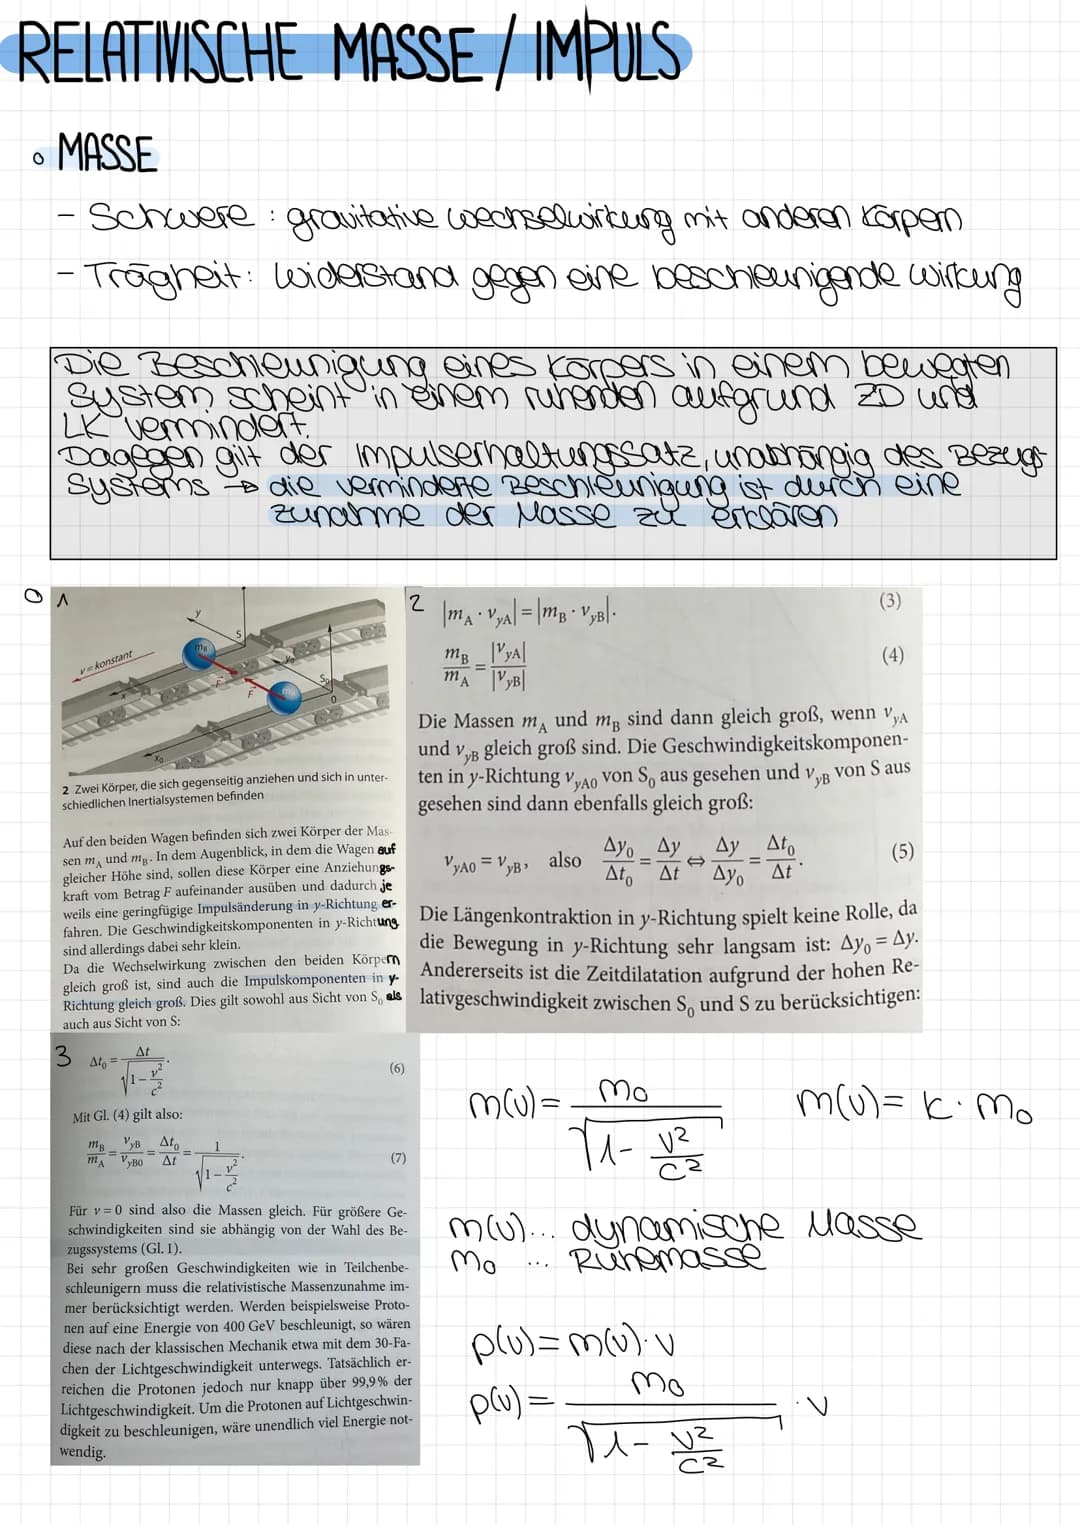 RELATIVISCHE MASSE / IMPULS
∘ MASSE
- Schwere : gravitative Wechselwirkung mit anderen Körpern
- Trägheit: Widerstand gegen eine beschleunigende Wirkung
Die Beschleunigung eines Körpers in einem bewegten
System scheint in einem ruhenden aufgrund ZD und
LK vermindert.
Dagegen gilt der Impulserhaltungssatz, unabhängig des Bezugs-
systems → die verminderte Beschleunigung ist durch eine
Zunahme der Masse zu erklären
1
y
S
m_B
v = konstant
y₀
S₀
F
F
m_A
x
0
x₀
2 Zwei Körper, die sich gegenseitig anziehen und sich in unter-
schiedlichen Inertialsystemen befinden
Auf den beiden Wagen befinden sich zwei Körper der Mas-
sen m_A und m_B. In dem Augenblick, in dem die Wagen auf
gleicher Höhe sind, sollen diese Körper eine Anziehungs-
kraft vom Betrag F aufeinander ausüben und dadurch je
weils eine geringfügige Impulsänderung in y-Richtung er-
fahren. Die Geschwindigkeitskomponenten in y-Richtung
sind allerdings dabei sehr klein.
Da die Wechselwirkung zwischen den beiden Körpern
gleich groß ist, sind auch die Impulskomponenten in y-
Richtung gleich groß. Dies gilt sowohl aus Sicht von S₀ als
auch aus Sicht von S:
2
|m_A · v_yA| = |m_B · v_yB|. (3)
m_B/m_A = |v_yA|/|v_yB| (4)
Die Massen m_A und m_B sind dann gleich groß, wenn v_yA
und v_yB gleich groß sind. Die Geschwindigkeitskomponen-
ten in y-Richtung v_yA0 von S₀ aus gesehen und v_yB von S aus
gesehen sind dann ebenfalls gleich groß:
v_yA0 = v_yB, also Δy₀/Δt₀ = Δy/Δt ⇔ Δy/Δy₀ = Δt₀/Δt. (5)
Die Längenkontraktion in y-Richtung spielt keine Rolle, da
die Bewegung in y-Richtung sehr langsam ist: Δy₀ = Δy.
Andererseits ist die Zeitdilatation aufgrund der hohen Re-
lativgeschwindigkeit zwischen S₀ und S zu berücksichtigen:
3
Δt₀ = Δt/√(1 − v²/c²). (6)
Mit Gl. (4) gilt also:
m_B/m_A = v_yB/v_yB0 = Δt₀/Δt = 1/√(1 − v²/c²). (7)
Für v = 0 sind also die Massen gleich. Für größere Ge-
schwindigkeiten sind sie abhängig von der Wahl des Be-
zugssystems (Gl. 1).
Bei sehr großen Geschwindigkeiten wie in Teilchenbe-
schleunigern muss die relativistische Massenzunahme im-
mer berücksichtigt werden. Werden beispielsweise Proto-
nen auf eine Energie von 400 GeV beschleunigt, so wären
diese nach der klassischen Mechanik etwa mit dem 30-Fa-
chen der Lichtgeschwindigkeit unterwegs. Tatsächlich er-
reichen die Protonen jedoch nur knapp über 99,9% der
Lichtgeschwindigkeit. Um die Protonen auf Lichtgeschwin-
digkeit zu beschleunigen, wäre unendlich viel Energie not-
wendig.
m(v) = m₀/√(1 - v²/c²) m(v) = k · m₀
m(v)... dynamische Masse
m₀ ... Ruhemasse
p(v) = m(v) · v
p(v) = m₀/√(1 - v²/c²) · v